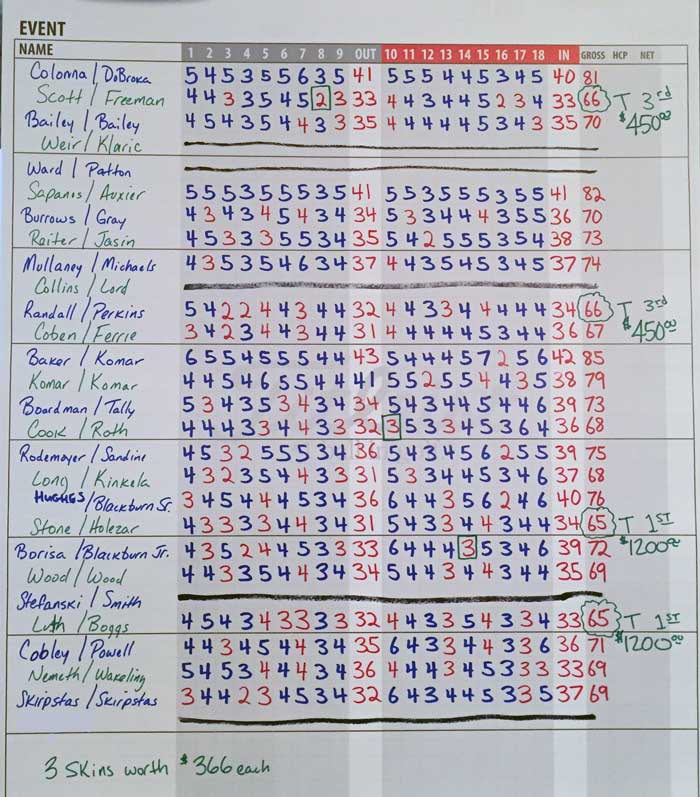 EVENT
NAME 1 2 3 4 5 6 7 8 9 OUT 10 11 12 13 14 15 16 17 18 IN GROSS HCP NET
Colonna / DoBroka 5 4 5 3 5 5 6 3 5 41 5 5 5 4 4 5 3 4 5 40 81
Scott / Freeman 4 4 3 3 5 4 5 2 3 33 4 4 3 4 4 5 2 3 4 33 66 T 3rd
Bailey / Bailey 4 5 4 3 5 4 4 3 3 35 4 4 4 4 4 5 3 4 3 35 70 $450.00
Weir / Klaric
Ward / Patton
Sapanos / Auxier 5 5 5 3 5 5 5 3 5 41 5 5 3 5 5 5 3 5 5 41 82
Burrows / Gray 4 3 4 3 4 5 4 3 4 34 5 3 3 4 4 4 3 5 5 36 70
Raiter / Jasin 4 5 3 3 3 5 5 3 4 35 5 4 2 5 5 5 3 5 4 38 73
Mullaney / Michaels 4 3 5 3 5 4 6 3 4 37 4 4 3 5 4 5 3 4 5 37 74
Collins / Lord
Randall / Perkins 5 4 2 2 4 4 3 4 4 32 4 4 3 3 4 4 4 4 4 34 66 T 3rd
Coben / Ferrie 3 4 2 3 4 4 3 4 4 31 4 4 4 4 4 5 3 4 4 36 67 $450.00
Baker / Komar 6 5 5 4 5 5 5 4 4 43 5 4 4 4 5 7 2 5 6 42 85
Komar / Komar 4 4 5 4 6 5 5 4 4 41 5 5 2 5 5 4 4 3 5 38 79
Boardman / Tally 5 3 4 3 5 3 4 3 4 34 5 4 3 4 4 5 4 4 6 39 73
Cook / Roth 4 4 4 3 3 4 4 3 3 32 3 5 3 3 4 5 3 6 4 36 68
Rodemoyer / Sandine 4 5 3 2 5 5 5 3 4 36 5 4 3 4 5 6 2 5 5 39 75
Long / Kinkela 4 3 2 3 5 4 4 3 3 31 5 3 3 4 4 5 3 4 6 37 68
HUGHES / Blackburn Sr. 3 4 5 4 4 4 5 3 4 36 6 4 4 3 5 6 2 4 6 40 76
Stone / Holezar 4 3 3 3 3 4 4 3 4 31 5 4 3 3 4 4 3 4 4 34 65 T 1ST
Borisa / Blackburn Jr. 4 3 5 2 4 4 5 3 3 33 6 4 4 4 3 5 3 4 6 39 72 $1200.00
Wood / Wood 4 4 3 3 5 4 4 3 4 34 5 4 4 3 4 4 3 4 4 35 69
Stefanski / Smith
Luth / Boggs 4 5 4 3 4 3 3 3 3 32 4 4 3 3 5 4 3 3 4 33 65 T 1ST
Cobley / Powell 4 4 3 4 5 4 4 3 4 35 6 4 3 3 4 4 3 3 6 36 71 $1200.00
Nemeth / Wakeling 5 4 5 3 4 4 4 3 4 36 4 4 4 3 4 5 3 3 3 33 69
Skirpstas / Skirpstas 3 4 4 2 3 4 5 3 4 32 6 4 3 4 4 5 3 3 5 37 69
3 Skins worth $366 each